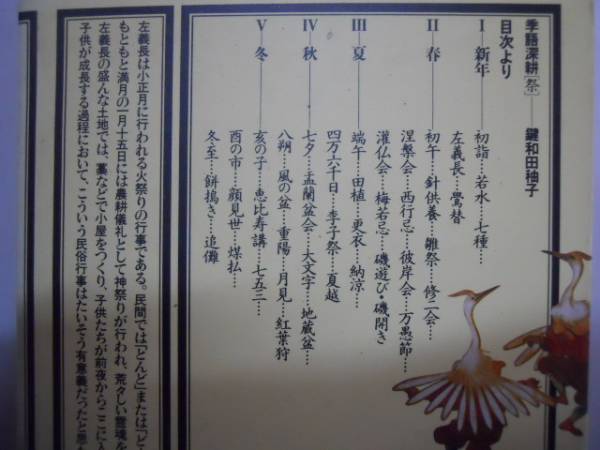 季語深耕[祭] 鍵和田秞子
目次より
I―新年――初詣…若水…七種…
左義長…鷽替
II―春――初午…針供養…雛祭…修二会…
涅槃会…西行忌…彼岸会…万愚節…
灌仏会…梅若忌…磯遊び・磯開き
III―夏――端午…田植…更衣…納涼…
四万六千日…李子祭…夏越
IV―秋――七夕…盂蘭盆会…大文字…地蔵盆…
八朔…風の盆…重陽…月見…紅葉狩
V―冬――亥の子…恵比寿講…七五三…
酉の市…顔見世…煤払…
冬至…餅搗き…追儺
左義長は小正月に行われる火祭りの行事である。民間では「どんど」または「ど
もともと満月の一月十五日には農耕儀礼として神祭りが行われ、荒々しい霊魂を
左義長の盛んな土地では、藁などで小屋をつくり、子供たちが前夜からここに
子供が成長する過程において、こういう民俗行事はたいそう有意義だったと思